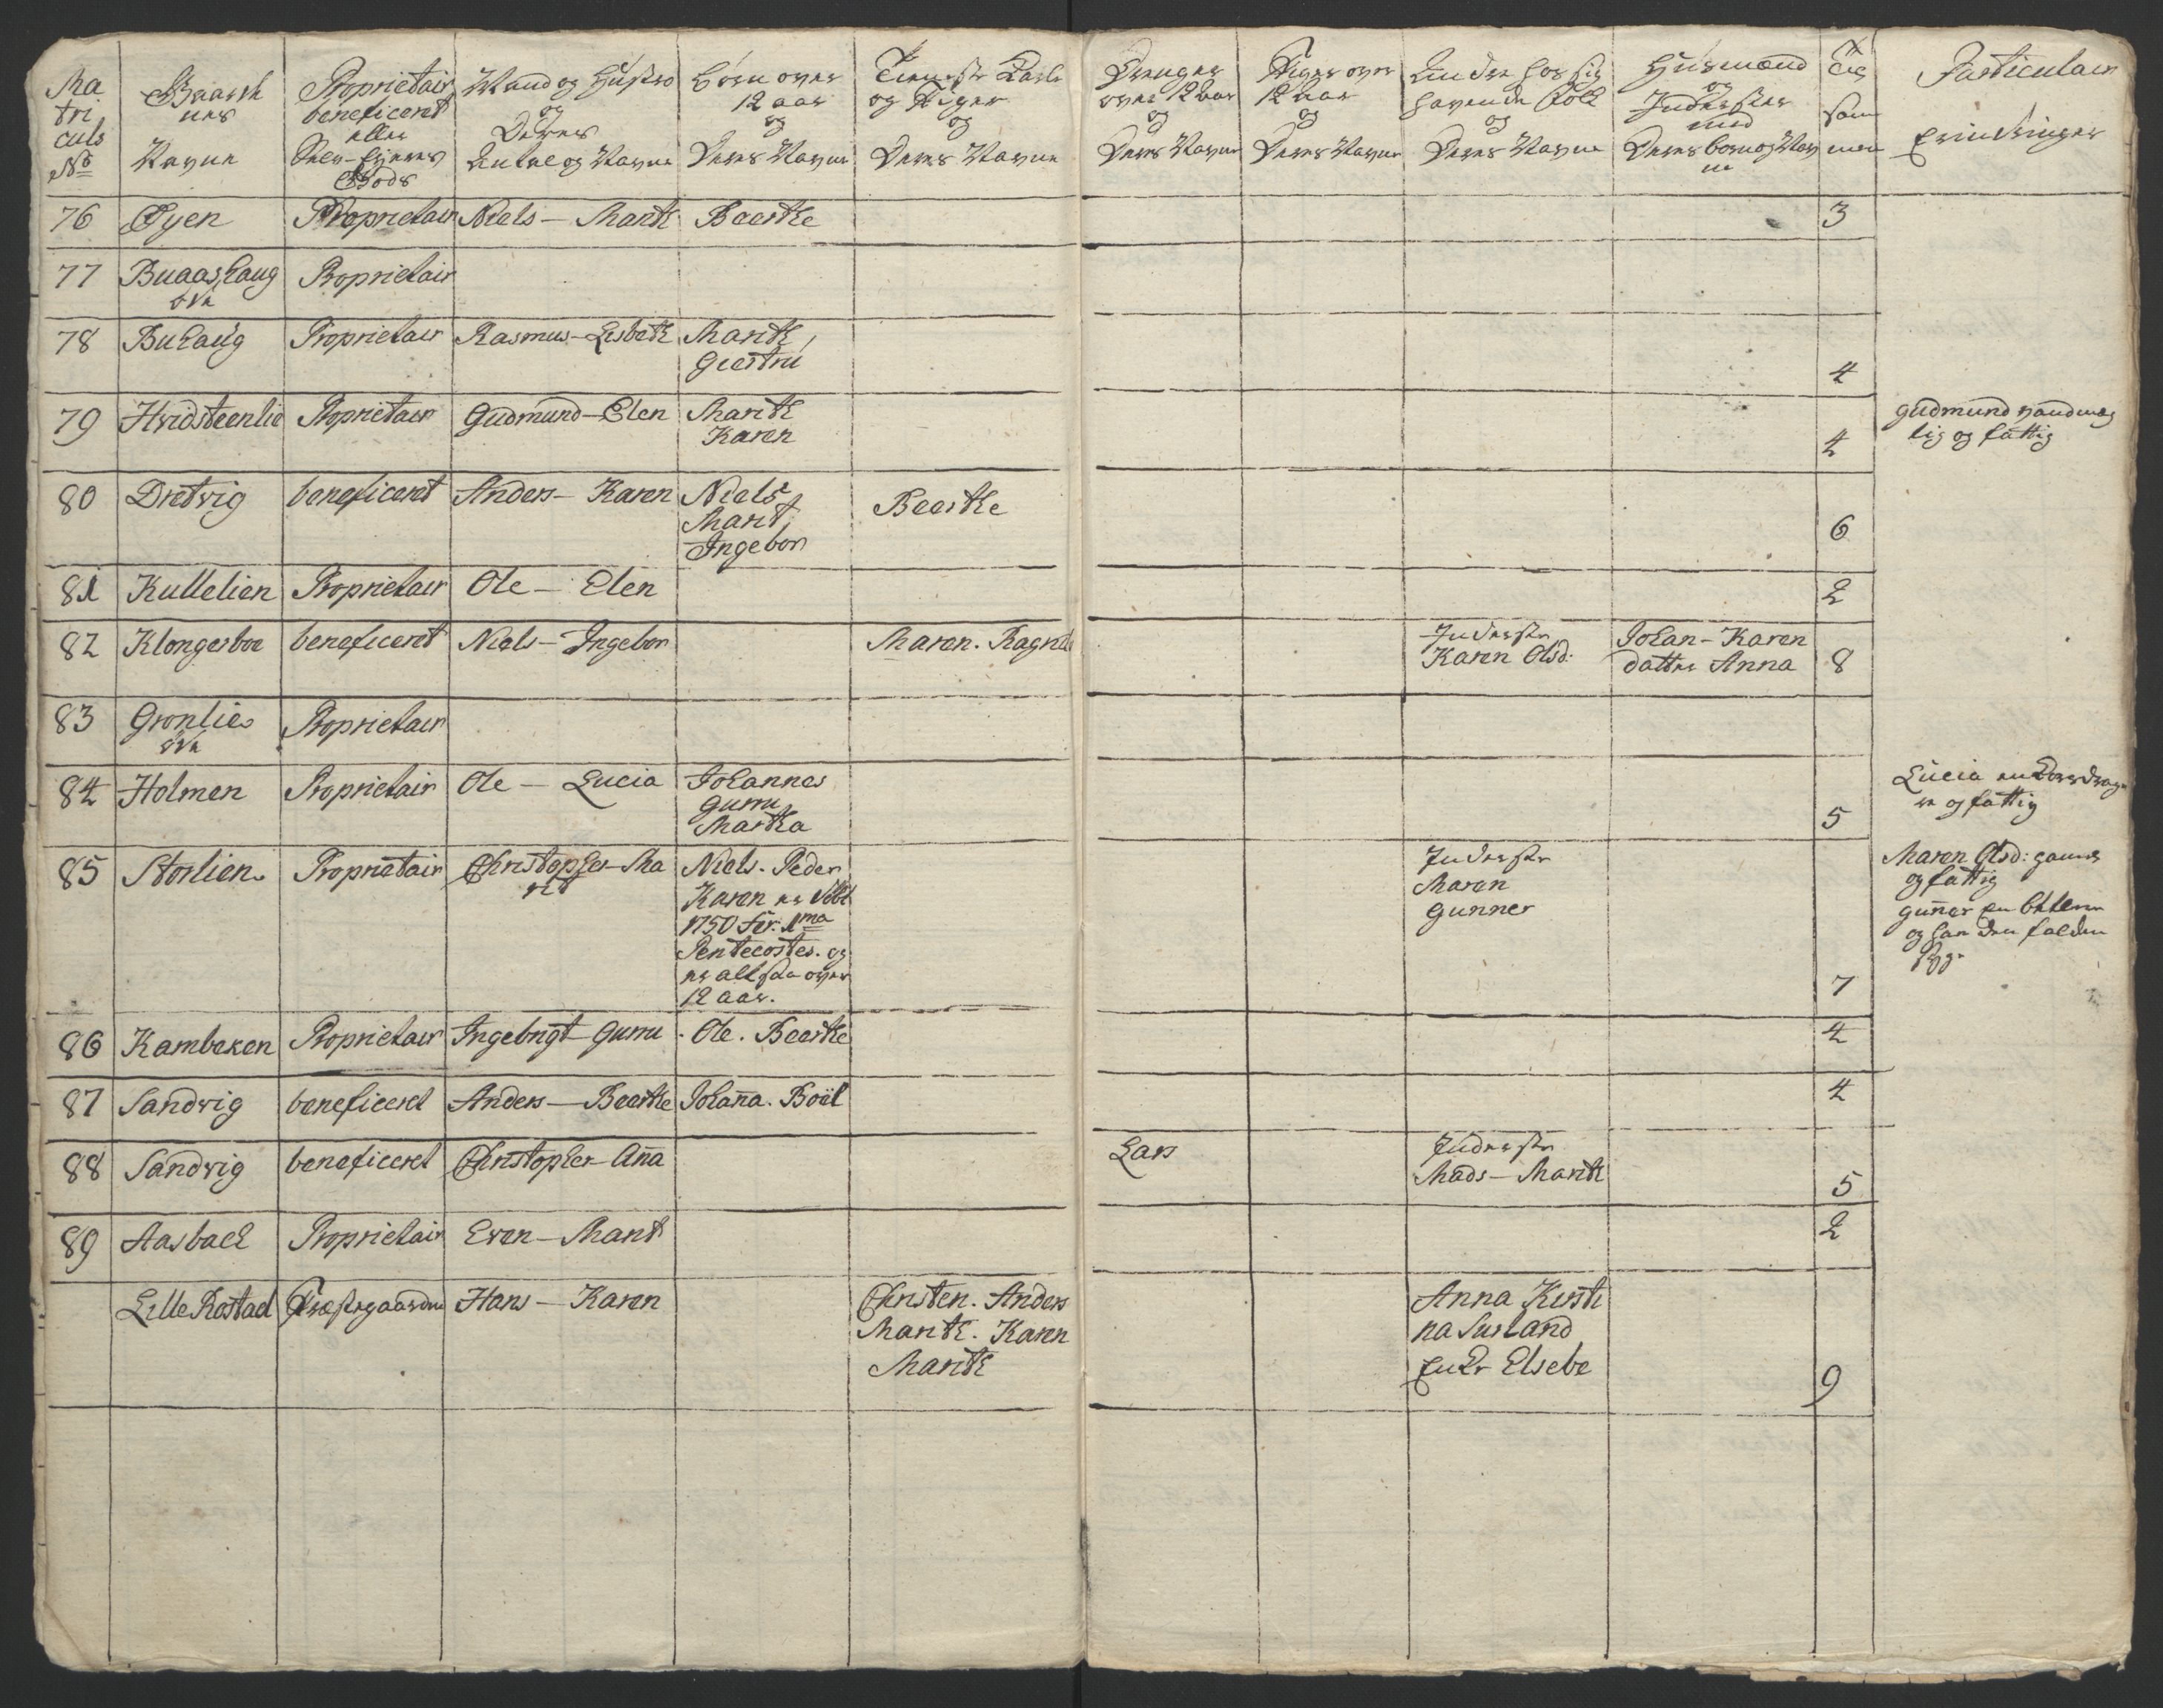 Ma
tri
culs
No
Gaarde
nes
Navne
Proprietair
beneficeret
eller
Selv-Ejeres
Gods
Mand og Hustro
og
Deres
Antal og Navne
Børn over
12 aar
og
Deres Navne
Tieneste Karle
og Piger
og
Deres Navne
Drenger
over 12 aar
og
Deres Navne
Piger over
12 aar
og
Deres Navne
Andre hos sig
havende Folk
og
Deres Navne
Huusmænd
og
Inderster
med
Deres børn og Nav
ne
Til
sam
men
Particulair
Erindringer
76 Øyen Proprietair Niels - Marith Beerthe 3
77 Buaashaug Proprietair
øde
78 Buhaug Proprietair Rasmus - Lisbeth Marith
Giertru 4
79 Hvidsteenlie Proprietair Gudmund - Elen Marith
Karen 4
Gudmund
lig og fattig
80 Dretvig beneficeret Anders - Karen Niels
Marit
Ingebor Beerthe 6
81 Kullelien Proprietair Ole - Elen 2
82 Klongerboe beneficeret Niels - Ingebor Maren. Ragnel Inderste
Karen Olsd: Johan - Karen
datter Anna 8
83 Grønlie Proprietair
øde
84 Holmen Proprietair Ole - Lucia Johannes
Gurru
Martha 5
Lucia en
og fattig
85 Storlien Proprietair Christopher - Ma
rit
Niels. Peder
Karen er døbt
1750 fer: 1ma
Pentecostes. og
er altsaa over
12 aar.
Inderste
Maren
Gunner 7
Maren Olsd:
og fattig
Guñer en
og har den faldende
Syge
86 Kambeken Proprietair Ingebrigt - Gurru Ole. Beerthe 4
87 Sandvig beneficeret Anders - Beerthe Johaña. Boël 4
88 Sandvig beneficeret Christopher - Aña Lars Inderste
Mads - Marith 5
89 Aasbach Proprietair Even - Marit 2
Lille Rostad Præstegaarden Hans - Karen Christen. Anders
Marith. Karen
Marith
Anna Kirsti
na Surland
Enke Elsebe 9